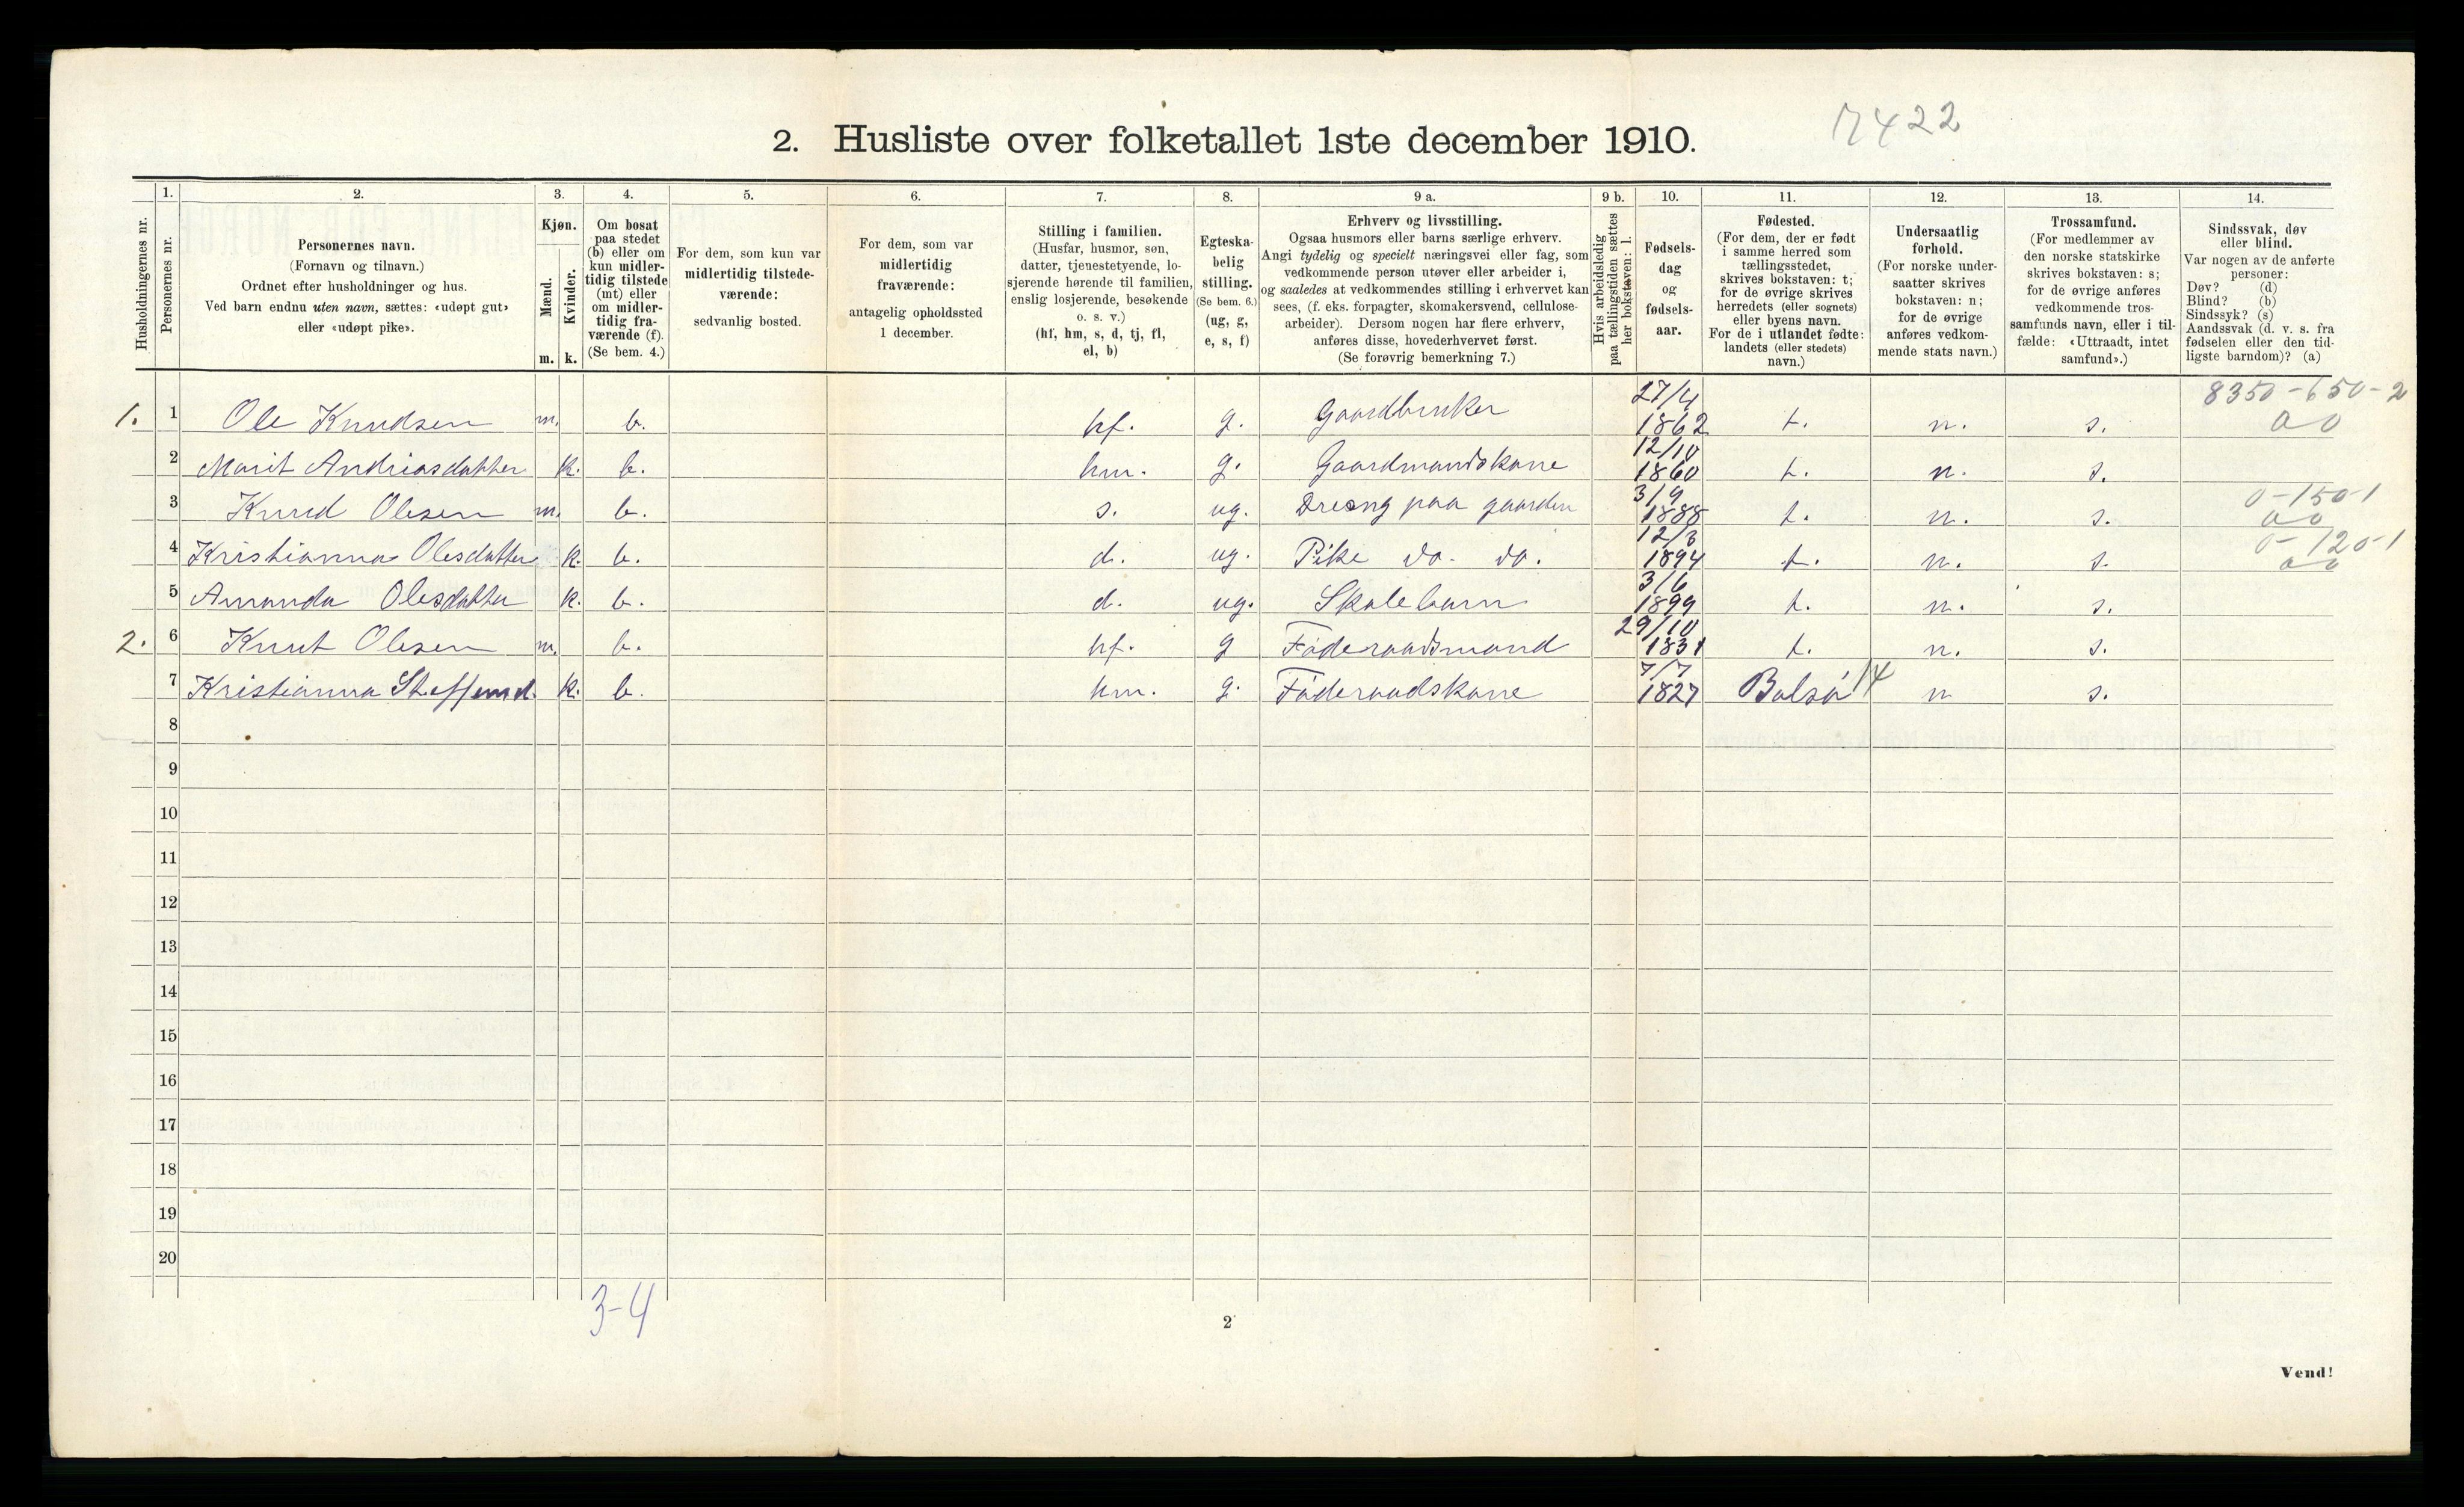 7422
2. Husliste over folketallet 1ste december 1910.
Husholdningernes nr.
1. Personernes nr.
2. Personernes navn. (Fornavn og tilnavn.) Ordnet efter husholdninger og hus. Ved barn endnu uten navn, sættes: «udøpt gut» eller «udøpt pike».
3. Kjøn. Mænd. m. Kvinder. k.
4. Om bosat paa stedet (b) eller om kun midlertidig tilstede (mt) eller om midlertidig fraværende (f). (Se bem. 4.)
5. For dem, som kun var midlertidig tilstedeværende: sedvanlig bosted.
6. For dem, som var midlertidig fraværende: antagelig opholdssted 1 december.
7. Stilling i familien. (Husfar, husmor, søn, datter, tjenestetyende, losjerende hørende til familien, enslig losjerende, besøkende o. s. v.) (hf, hm, s, d, tj, fl, el, b)
8. Egteskabelig stilling. (Se bem. 6.) (ug, g, e, s, f)
9 a. Erhverv og livsstilling. Ogsaa husmors eller barns særlige erhverv. Angi tydelig og specielt næringsvei eller fag, som vedkommende person utøver eller arbeider i, og saaledes at vedkommendes stilling i erhvervet kan sees, (f. eks. forpagter, skomakersvend, cellulosearbeider). Dersom nogen har flere erhverv, anføres disse, hovederhvervet først. (Se forøvrig bemerkning 7.)
9 b. Hvis arbeidsledig paa tællingstiden sættes her bokstaven: l.
10. Fødselsdag og fødselsaar.
11. Fødested. (For dem, der er født i samme herred som tællingsstedet, skrives bokstaven: t; for de øvrige skrives herredets (eller sognets) eller byens navn. For de i utlandet fødte: landets (eller stedets) navn.)
12. Undersaatlig forhold. (For norske undersaatter skrives bokstaven: n; for de øvrige anføres vedkommende stats navn.)
13. Trossamfund. (For medlemmer av den norske statskirke skrives bokstaven: s; for de øvrige anføres vedkommende trossamfunds navn, eller i tilfælde: «Uttraadt, intet samfund».)
14. Sindssvak, døv eller blind. Var nogen av de anførte personer: Døv? (d) Blind? (b) Sindssyk? (s) Aandssvak (d. v. s. fra fødselen eller den tidligste barndom)? (a)
8350-650-2
1. 1 Ole Knudsen m. b. hf. g. Gaardbruker 27/4 1862 t. n. s. 00
2 Marit Andriasdatter k. b. hm. g. Gaardmandskone 12/10 1860 t. n. s.
3 Knud Olesen m. b. s. ug. Dreng paa gaarden 3/9 1888 t. n. s. 0-150-1 00
4 Kristianna Olesdatter k. b. d. ug. Pike do. do. 12/3 1894 t. n. s. 0-120-1 00
5 Amanda Olesdatter k. b. d. ug. Skolebarn 3/6 1899 t. n. s.
2. 6 Knut Olesen m. b. hf. g Føderaadsmand 29/10 1831 t. n. s.
7 Kristianna Steffensd. k. b. hm. g. Føderaadskone 7/7 1827 Bolsø 14 n s.
8
9
10
11
12
13
14
15
16
17
18
19
20
3-4
2
Vend!